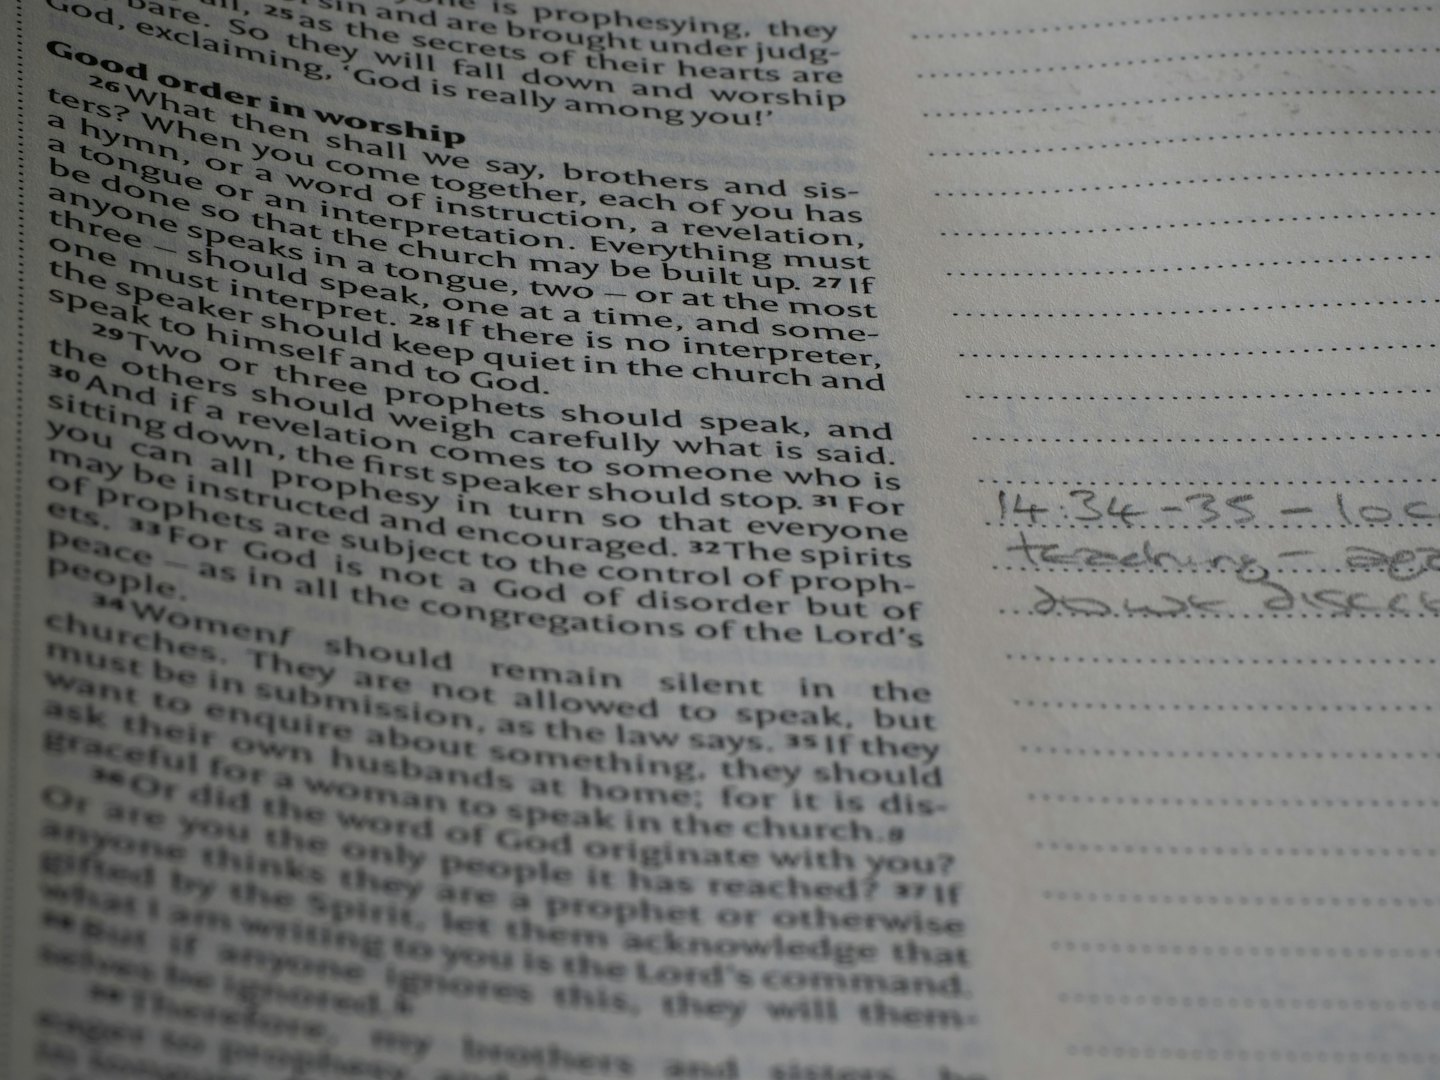 one is prophesying, they
sin and are brought under judg-
all, 25 as the secrets of their hearts are
bare. So they will fall down and worship
God, exclaiming, ‘God is really among you!’
Good order in worship
26 What then shall we say, brothers and sis-
ters? When you come together, each of you has
a hymn, or a word of instruction, a revelation,
a tongue or an interpretation. Everything must
be done so that the church may be built up. 27 If
anyone speaks in a tongue, two – or at the most
three – should speak, one at a time, and some-
one must interpret. 28 If there is no interpreter,
the speaker should keep quiet in the church and
speak to himself and to God.
29 Two or three prophets should speak, and
the others should weigh carefully what is said.
30 And if a revelation comes to someone who is
sitting down, the first speaker should stop. 31 For
you can all prophesy in turn so that everyone
may be instructed and encouraged. 32 The spirits
of prophets are subject to the control of proph-
ets. 33 For God is not a God of disorder but of
peace – as in all the congregations of the Lord’s
people.
34 Womenf should remain silent in the
churches. They are not allowed to speak, but
must be in submission, as the law says. 35 If they
want to enquire about something, they should
ask their own husbands at home; for it is dis-
graceful for a woman to speak in the church.g
36 Or did the word of God originate with you?
Or are you the only people it has reached? 37 If
anyone thinks they are a prophet or otherwise
gifted by the Spirit, let them acknowledge that
what I am writing to you is the Lord’s command.
38 But if anyone ignores this, they will them-
selves be ignored.h
39 Therefore, my brothers and sisters, be
eager to prophesy, and
14:34-35 – loc
teaching –
do we disc